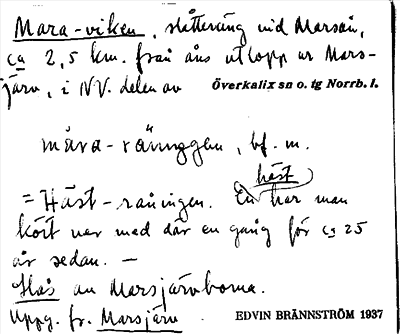 Mara-viken, slåttering vid Marsån,
ca 2,5 km. från åns utlopp ur Mars-
järv, i NV. delen av Överkalix sn o. tg Norrb. l.
måra-rännggen, bf. m.
= Häst-raningen. En häst har man
kört ner med där en gång för ca 25
år sedan. —
Hos an Marsjärvborna.
Uppg. fr. Marsjärv
EDVIN BRÄNNSTRÖM 1937